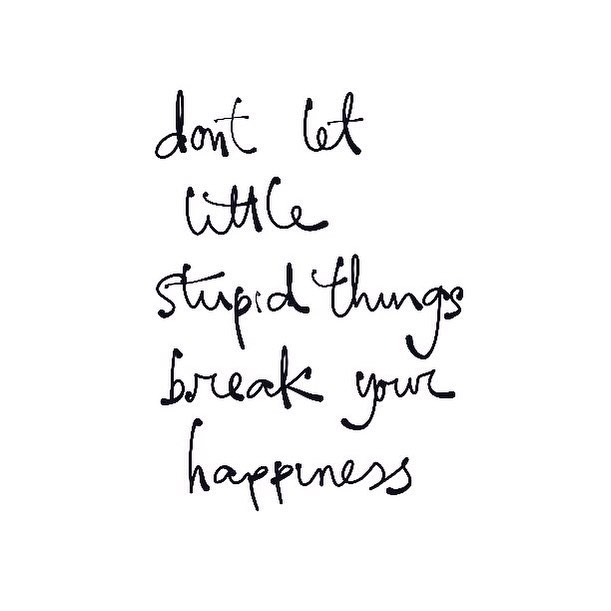 dont let
little
stupid things
break your
happiness